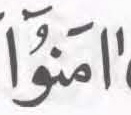 اٰمَنُوْۤا